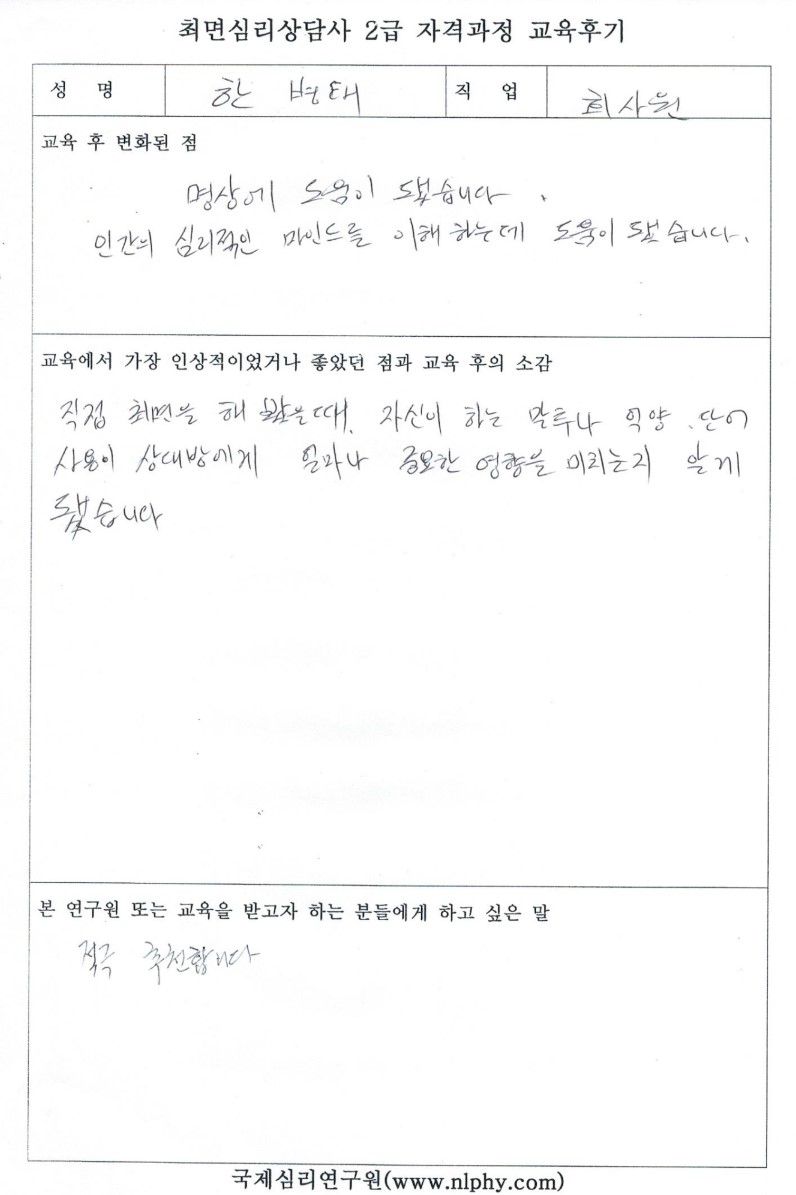 최면심리상담사 2급 자격과정 교육후기
성 명 한병태 직 업 회사원
교육 후 변화된 점
명상에 도움이 됐습니다.
인간의 심리적인 마인드를 이해 하는데 도움이 됐습니다.
교육에서 가장 인상적이었거나 좋았던 점과 교육 후의 소감
직접 최면을 해 봤을때, 자신이 하는 말투나 억양, 단어
사용이 상대방에게 얼마나 중요한 영향을 미치는지 알게
됐습니다
본 연구원 또는 교육을 받고자 하는 분들에게 하고 싶은 말
적극 추천합니다
국제심리연구원(www.nlphy.com)